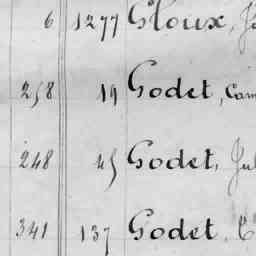 6 1277 Gloux, J
258 19 Godet, Cam
248 45 Godet, Jul
341 137 Godet, C